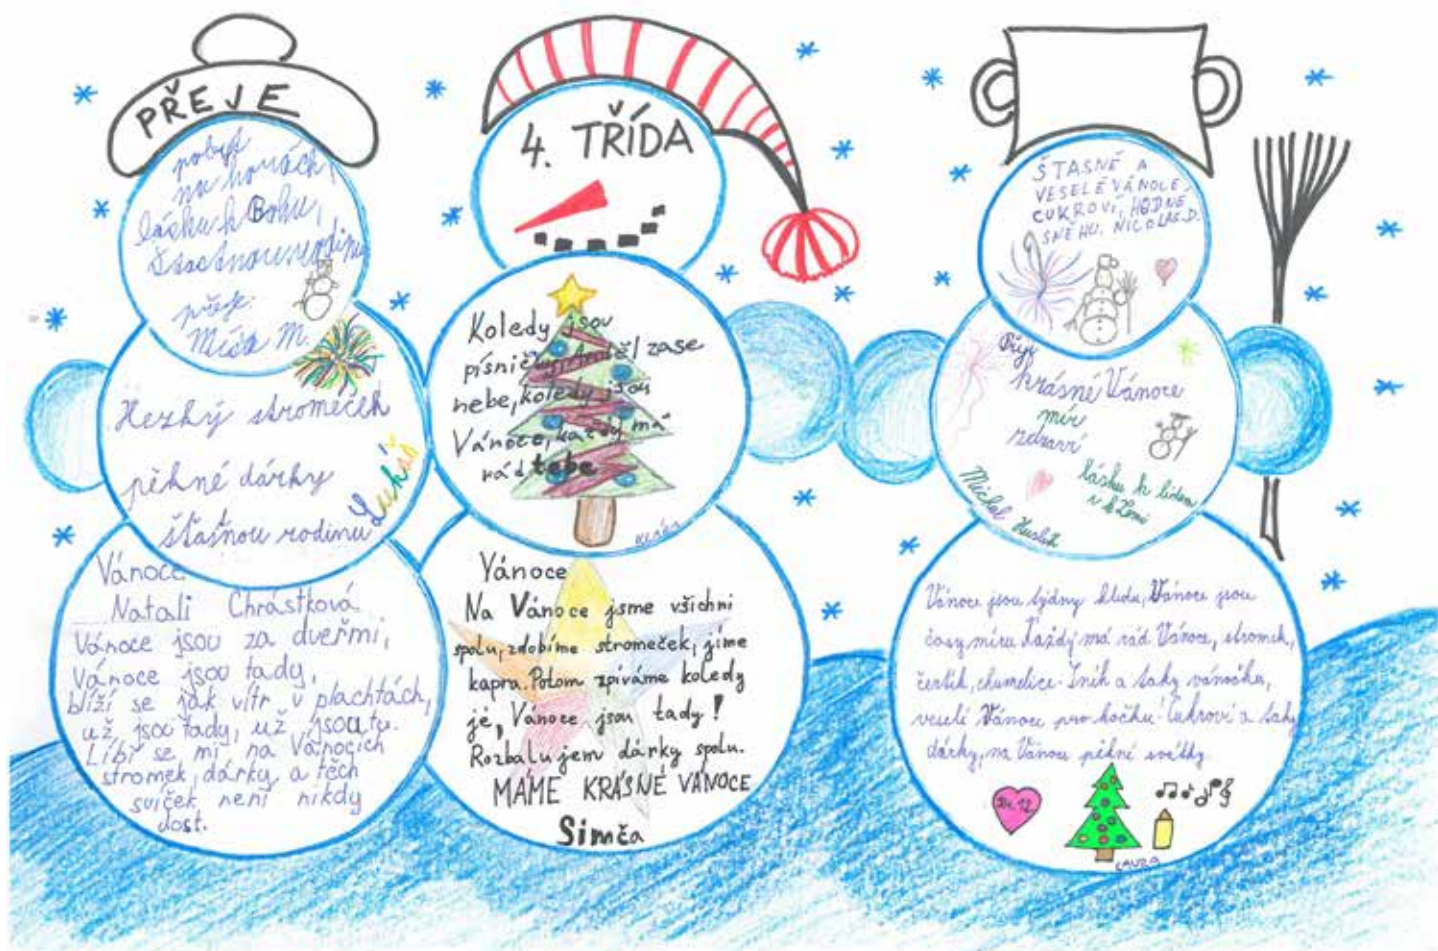 PŘEJE
pobyt
na horách,
lásku k Bohu,
šťastnou rodinu
přeje:
Míša M.
Hezký stromeček
pěkné dárky
šťasňou rodinu
Lukáš
Vánoce
Natali Chrástková
Vánoce jsou za dveřmi,
Vánoce jsou tady,
blíží se jak vítr v plachtách,
už jsou tady, už jsou tu.
Líbí se mi na Vánocích
stromek, dárky a těch
svíček není nikdy
dost.
4. TŘÍDA
Koledy jsou
písničky, zase
nebe, koledy jsou
Vánoce, každý má
rád tebe
Vánoce
Na Vánoce jsme všichni
spolu, zdobíme stromeček, jíme
kapra. Potom zpíváme koledy
jé, Vánoce jsou tady!
Rozbalujem dárky spolu.
MÁME KRÁSNÉ VÁNOCE
Simča
ŠTASNÉ A
VESELÉ VÁNOCE,
CUKROVÍ, HODNĚ
SNĚHU. NICOLAS.D.
Přeji
krásné Vánoce
mír
zdraví
lásku k lidem
i k Zemi
Michal
Vánoce jsou týdny klidu, Vánoce jsou
časy míru. Každý má rád Vánoce, stromek,
čertík, chumelice. Sníh a taky vánočka,
veselé Vánoce pro kočku! Cukroví a taky
dárky, na Vánoce pěkné svátky.
24.12.
LAURA